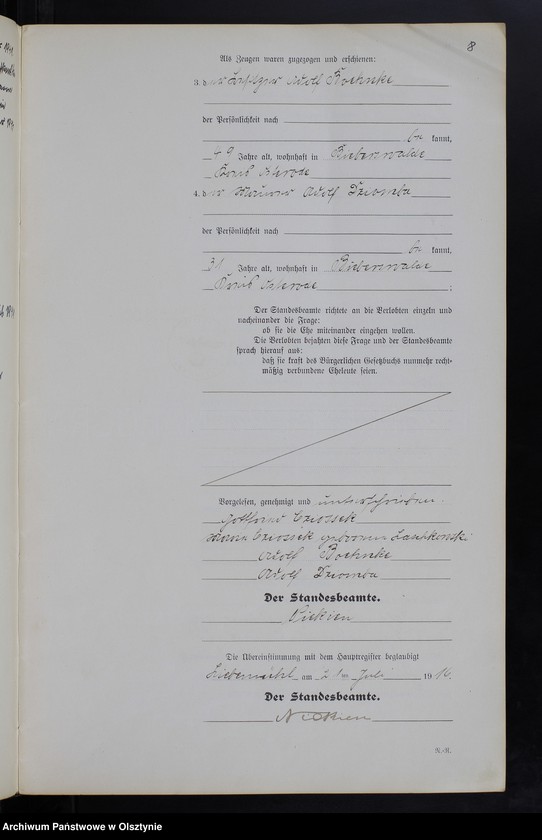 8
Als Zeugen waren zugezogen und erschienen:
3. der Adolf Boehnke
der Persönlichkeit nach
be kannt,
49 Jahre alt, wohnhaft in Bieberswalde
Kreis Osterode
4. der Maurer Adolf Dziomba
der Persönlichkeit nach
be kannt,
31 Jahre alt, wohnhaft in Bieberswalde
Kreis Osterode ;
Der Standesbeamte richtete an die Verlobten einzeln und
nacheinander die Frage:
ob sie die Ehe miteinander eingehen wollen.
Die Verlobten bejahten diese Frage und der Standesbeamte
sprach hierauf aus:
daß sie kraft des Bürgerlichen Gesetzbuchs nunmehr recht-
mäßig verbundene Eheleute seien.
Vorgelesen, genehmigt und unterschrieben.
Gottlieb
geborene
Adolf Boehnke
Adolf Dziomba
Der Standesbeamte.
Die Übereinstimmung mit dem Hauptregister beglaubigt
Liebemühl am Juli 19
Der Standesbeamte.
R.-R.
Archiwum Państwowe w Olsztynie